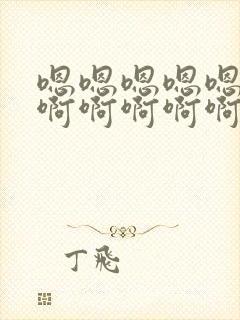 嗯嗯嗯嗯嗯
啊啊啊啊啊
丁飛